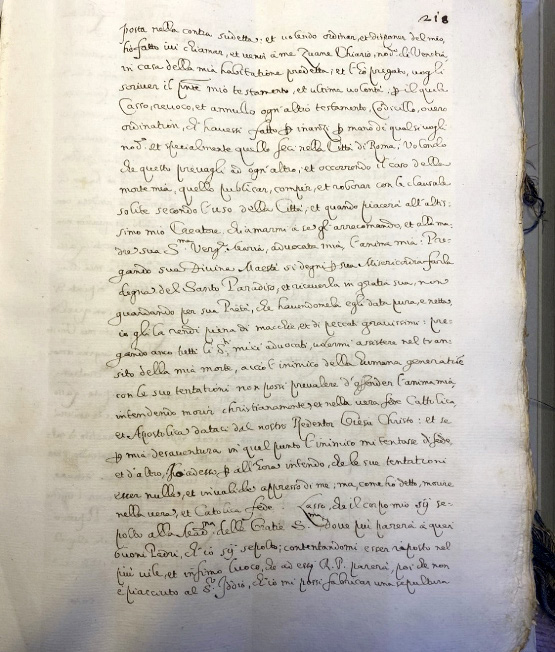 218
posta nella contra sudetta, et volendo ordinar, et disponer del mio,
hò fatto qui chiamar, et venir à me Zuane Chiario, nodº di Venetia,
in casa della mia habitatione predetta; et l'hò pregato, vogli
scriver il pnte mio testamento, et ultima volontà, p il quale
Casso, revoco, et annullo ogn'altro testamento, Codicillo, overo
ordination, ch'havessi fatto p inanzi p mano di qual si vogli
nodº, et specialmente quello feci nella Città di Roma; Volendo
che questo prevagli ad ogn'altro, et occorrendo il caso della
morte mia, quello publicar, compir, et roborar con le clausule
solite secondo l'uso della Città, et quando piacerà all'altis:
simo mio Creatore, chiamarmi à se gl'arrecomando, et alla ma:
dre sua Sma Verge Maria, advocata mia, l'anima mia: Pre:
gando sua Divina Maestà si degni p sua Misericordia farla
degna del Santo Paradiso, et ricuerla in gratia sua, non
guardando per sua Pietà, che havendomela egli data pura, e netta,
io gli la rendi piena di macchie, et di peccati gravissimi: pre:
gando anco tutti li Sti miei advocati, volermi assistere nel tran:
sito della mia morte, acciò l'inimico della humana generatiõe
con le sue tentationi non possi prevalere d'offender l'anima mia,
intendendo morir christianamente, et nella vera fede Cattolica,
et Apostolica dataci dal nostro Redentor Giesu Christo: et se
p mia desaventura in qual punto l'inimico mi tentasse di fede,
et d'altro, Io adesso p all'hora intendo, che le sue tentationi
esser nulle, et invalide appresso di me; ma, come hò detto, morire
nella vera, et Catolica fede. Lasso, che il corpo mio sij se:
polto alla delle Gratie dove più parerà à quei
buoni Padri, ch'io sij sepolto; contentandomi esser riposto nel
più vile, et infimo luoco, che ad essi R. P. parerà, poi che non
è piacciuto al Sr Iddio, ch'io mi possi fabricar una sepultura